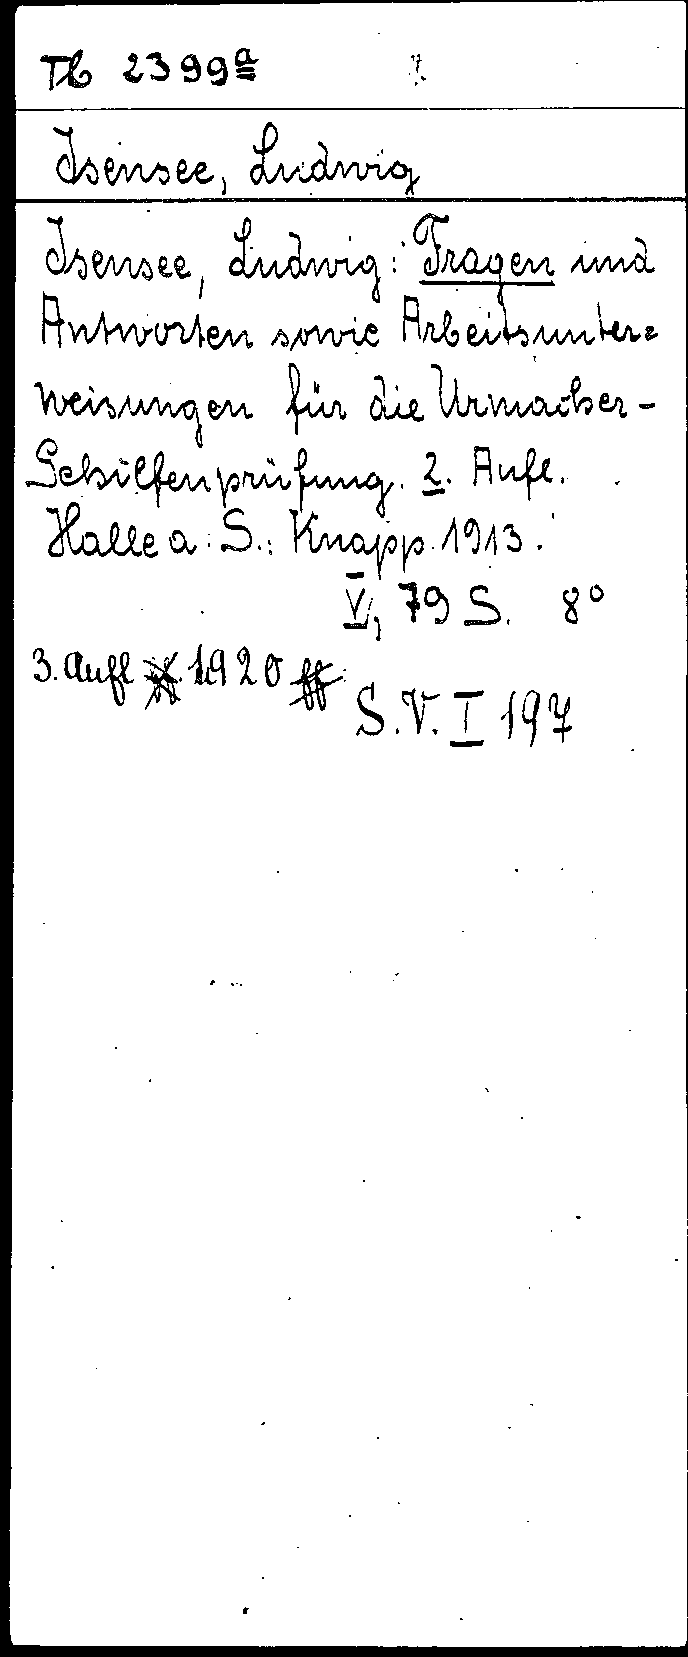 Tb 2399a
Isensee, Ludwig
Isensee, Ludwig: Fragen und
Antworten sowie Arbeitsunter=
weisungen für die Urmacher-
Gehilfenprüfung. 2. Aufl.
Halle a. S.: Knapp 1913.
V, 79 S. 8°
3. Aufl 1920
S.V. I 197